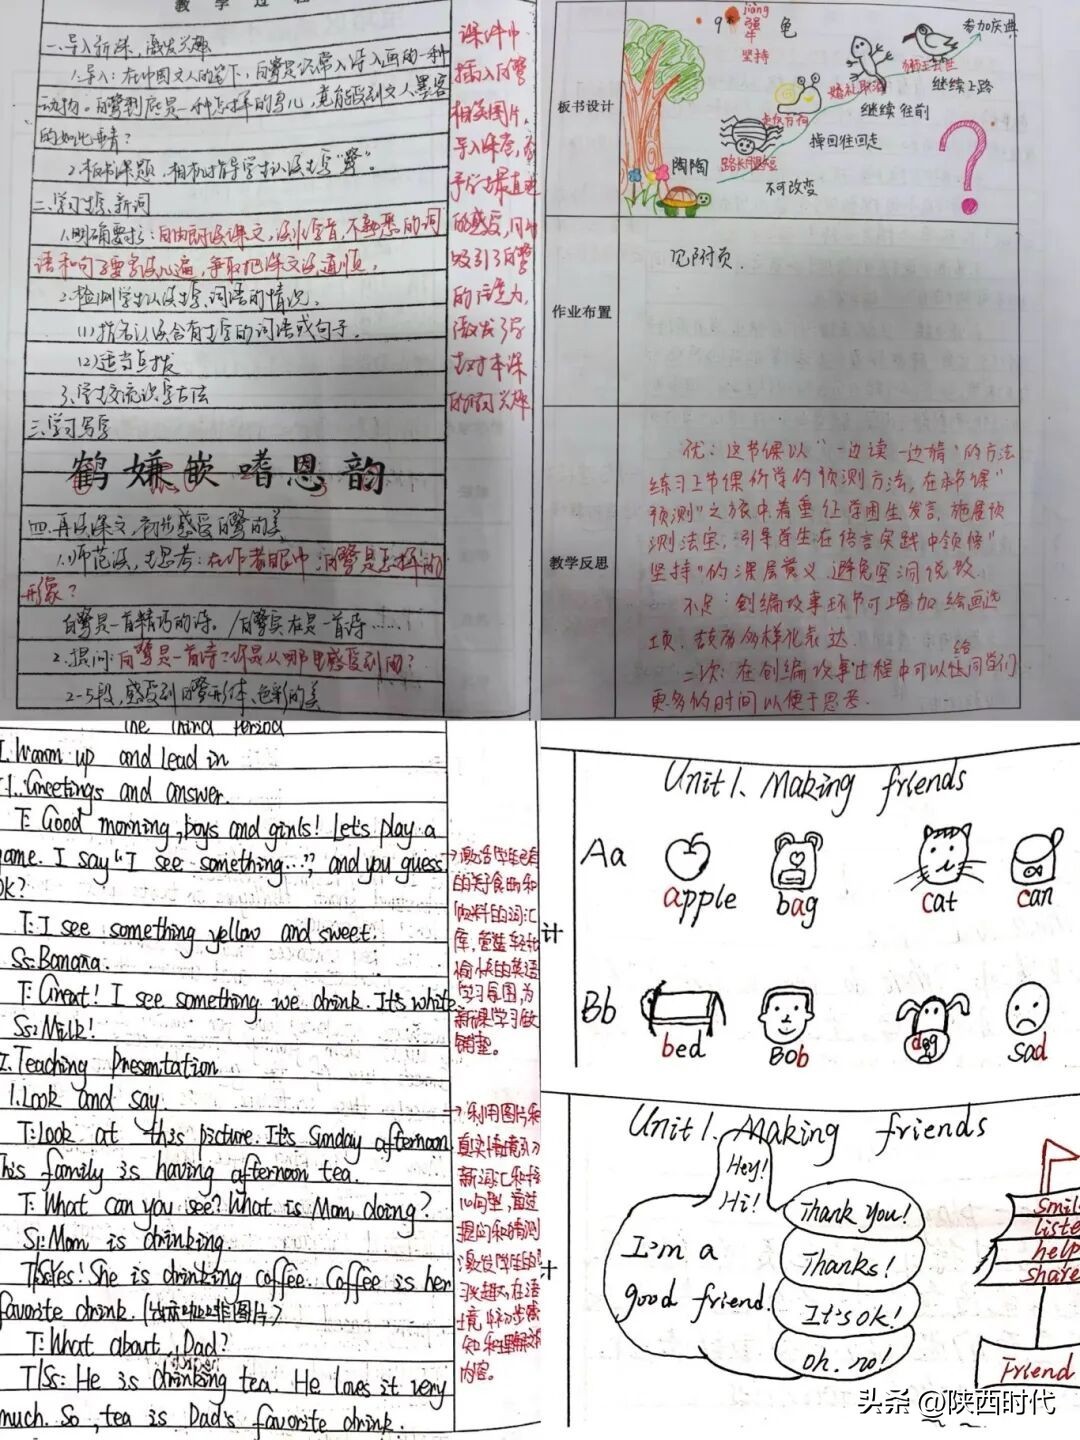 教 学 过 程
一、导入新课，激发兴趣
1.导入：在中国文人的笔下，白鹭是常常入诗入画的一种
动物。白鹭到底是一种怎样的鸟儿，竟能受到文人墨客
的如此垂青？
2.板书课题，相机指导学生认读生字“鹭”。
二、学习生字新词
1.明确要求：自由朗读课文，读准字音，不熟悉的词
语和句子要多读几遍，争取把课文读通顺。
2.检测学生认读生字词语的情况。
(1)指名认读含有生字的词语或句子。
(2)适当点拨
3.学生交流识字方法
三、学习写字
鹤 嫌 嵌 嗜 恩 韵
四、再读课文，初步感受白鹭的美
1.师范读，生思考：在作者眼中，白鹭是怎样的
形象？
白鹭是一首精巧的诗。/白鹭实在是一首诗……
2.提问：白鹭是一首诗？你是从哪里感受到的？
2-5段，感受到白鹭形体、色彩的美
课件中
插入白鹭
相关图片，
导入课堂，
予学生最直
的感受，同时
吸引了
的注意力，
激发了学
生对本课
的学习兴趣
板书设计
jiāng
强
坚持
龟
参加庆典
狮王去世
继续上路
婚礼取消
继续往前
走反方向
掉回往回走
路长腿短
不可改变
陶陶
?
作业布置
见附页。
教学反思
优：这节课以“一边读一边猜”的方法
练习上节课所学的预测方法，在本节课“
预测”之旅中着重让学困生发言，施展预
测法宝，引导学生在语言实践中领悟“
坚持”的深层意义，避免空洞说教。
不足：创编故事环节可增加绘画选
项，鼓励多样化表达。
二次：在创编故事过程中可以给同学们
更多的时间以便于思考。
the Third Period
I. Warm up and lead in
1. Greetings and answer.
T: Good morning, boys and girls! Let's play a
game. I say “I see something...”, and you guess.
OK?
T: I see something yellow and sweet.
Ss: Banana.
T: Great! I see something we drink. It's white.
Ss: Milk!
II. Teaching Presentation
1. Look and say.
T: Look at this picture. It's Sunday afternoon.
This family is having afternoon tea.
T: What can you see? What is Mom doing?
S1: Mom is drinking.
T/Ss: Yes! She is drinking coffee. Coffee is her
favorite drink. (出示咖啡图片)
T: What about Dad?
T/Ss: He is drinking tea. He loves it very
much. So, tea is Dad's favorite drink.
激活学生已有
的关于食物和
饮料的词汇
库，营造轻松
愉快的英语
学习氛围，为
新课学习做
铺垫。
利用图片和
真实情境引入
新词汇和核
心句型，通过
提问和猜测
激发学生的学
习兴趣，在语
境中初步感
知和理解新
内容。
计
Unit 1. Making friends
Aa apple bag cat can
Bb bed Bob dog sad
计
Unit 1. Making friends
Hey!
Hi!
I'm a
good friend.
Thank you!
Thanks!
It's ok!
Oh. no!
smile
listen
help
share
Friend
头条 @陕西时代